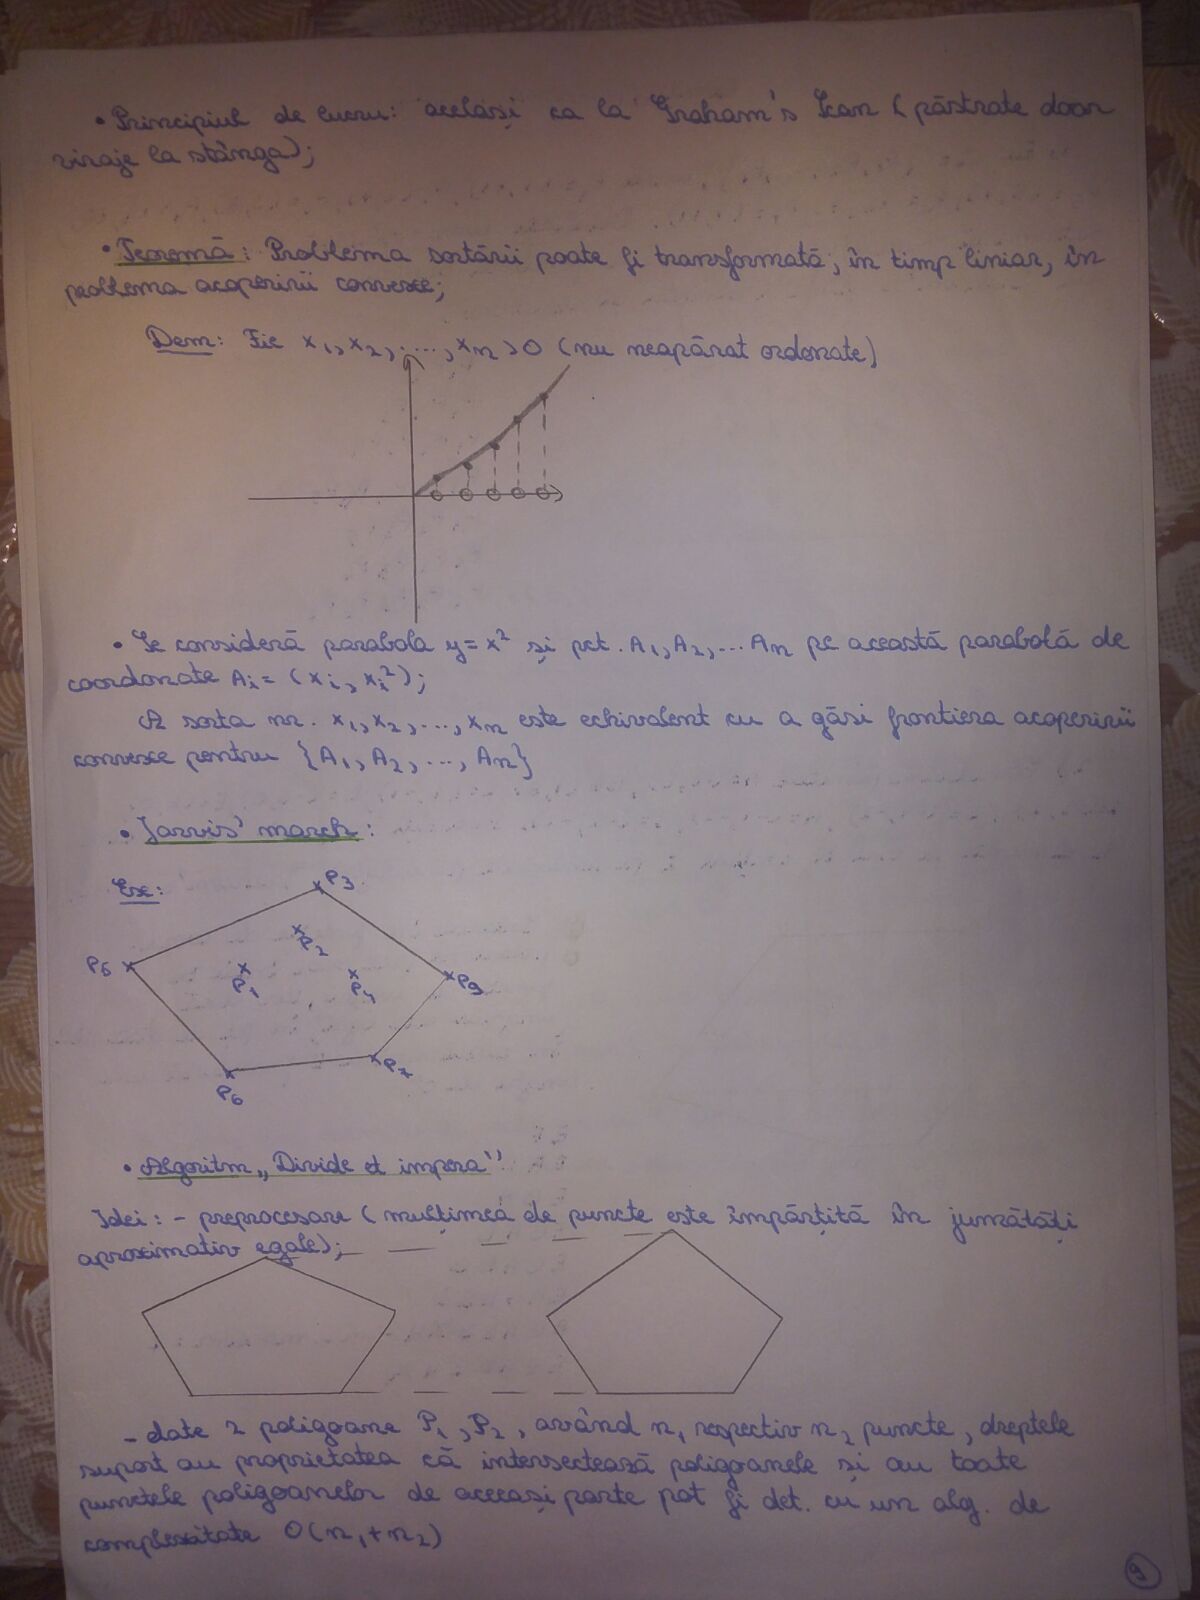 • Principiul de lucru: același ca la Graham's Scan (păstrate doar
viraje la stânga);
• Teoremă: Problema sortării poate fi transformată, în timp liniar, în
problema acoperirii convexe;
Dem: Fie x₁, x₂, ..., xₙ > 0 (nu neapărat ordonate)
• Se consideră parabola y = x² și pct. A₁, A₂, ... Aₙ pe această parabolă de
coordonate Aᵢ = (xᵢ, xᵢ²);
A sorta nr. x₁, x₂, ..., xₙ este echivalent cu a găsi frontiera acoperirii
convexe pentru {A₁, A₂, ..., Aₙ}
• Jarvis' march:
Ex:
P₃
P₂
P₅
P₁
P₄
P₉
P₇
P₆
• Algoritm „Divide et impera”
Idei: - preprocesare (mulțimea de puncte este împărțită în jumătăți
aproximativ egale);
- date 2 poligoane P₁, P₂, având n₁ respectiv n₂ puncte, dreptele
suport au proprietatea că intersectează poligoanele și au toate
punctele poligoanelor de aceeași parte pot fi det. cu un alg. de
complexitate O(n₁+n₂)
9